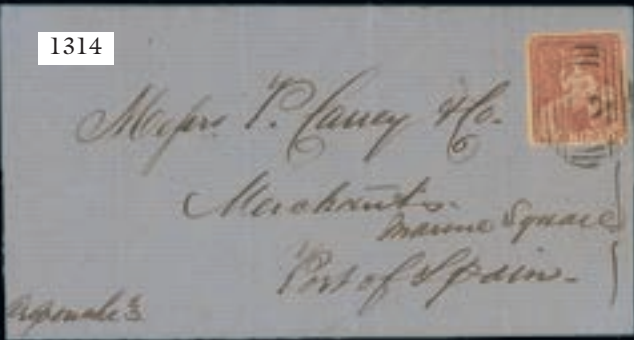 1314
Messrs P. Cauey & Co.
Merchants.
Marine Square
Port of Spain.